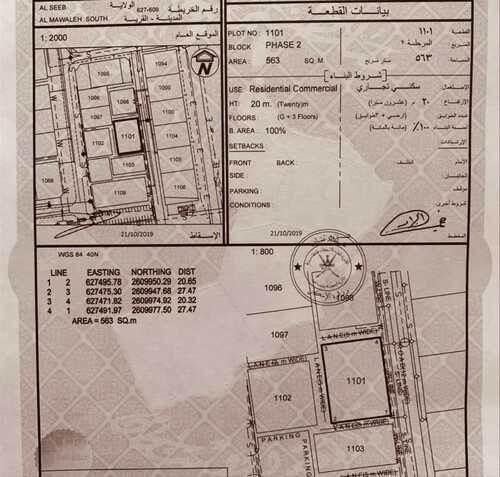 AL SEEB
الولاية
AL MAWALEH SOUTH
المدينة - القرية
627-609
رقم الخريطة
1: 2000
الموقع العام
N
1095
1096
1098
1097
1100
1101
1102
1104
1103
1105
1106
1108
1110
21/10/2019
الإسقاط
بيانات القطعة
PLOT NO : 1101
١١٠١
القطعة
BLOCK PHASE 2
المرحلة ٢
المربع
AREA : 563 SQ. M
٥٦٣
المساحة
شروط البناء
USE : Residential Commercial
سكني تجاري
الإستعمال
HT: 20 m. (Twenty)m
٢٠ م. (عشرون مترا)
الإرتفاع
FLOORS ( G + 3 Floors)
عدد الطوابق
B. AREA : 100%
١٠٠٪ (مائة بالمائة)
نسبة البناء
SETBACKS :
الإرتدادات
FRONT : BACK :
الخلف :
الأمام
SIDE :
الجانبان
PARKING :
موقف
CONDITIONS :
شروط أخرى
21/10/2019
المخطط
WGS 84 40N
1 : 800
LINE EASTING NORTHING DIST
1 2 627495.78 2609950.29 20.65
2 3 627475.30 2609947.68 27.47
3 4 627471.82 2609974.92 20.32
4 1 627491.97 2609977.50 27.47
AREA = 563 SQ.m
1096
1098
1097
LANE(5 m WIDE)
LANE(5 m WIDE)
1101
1102
1103
PARKING
PARKING